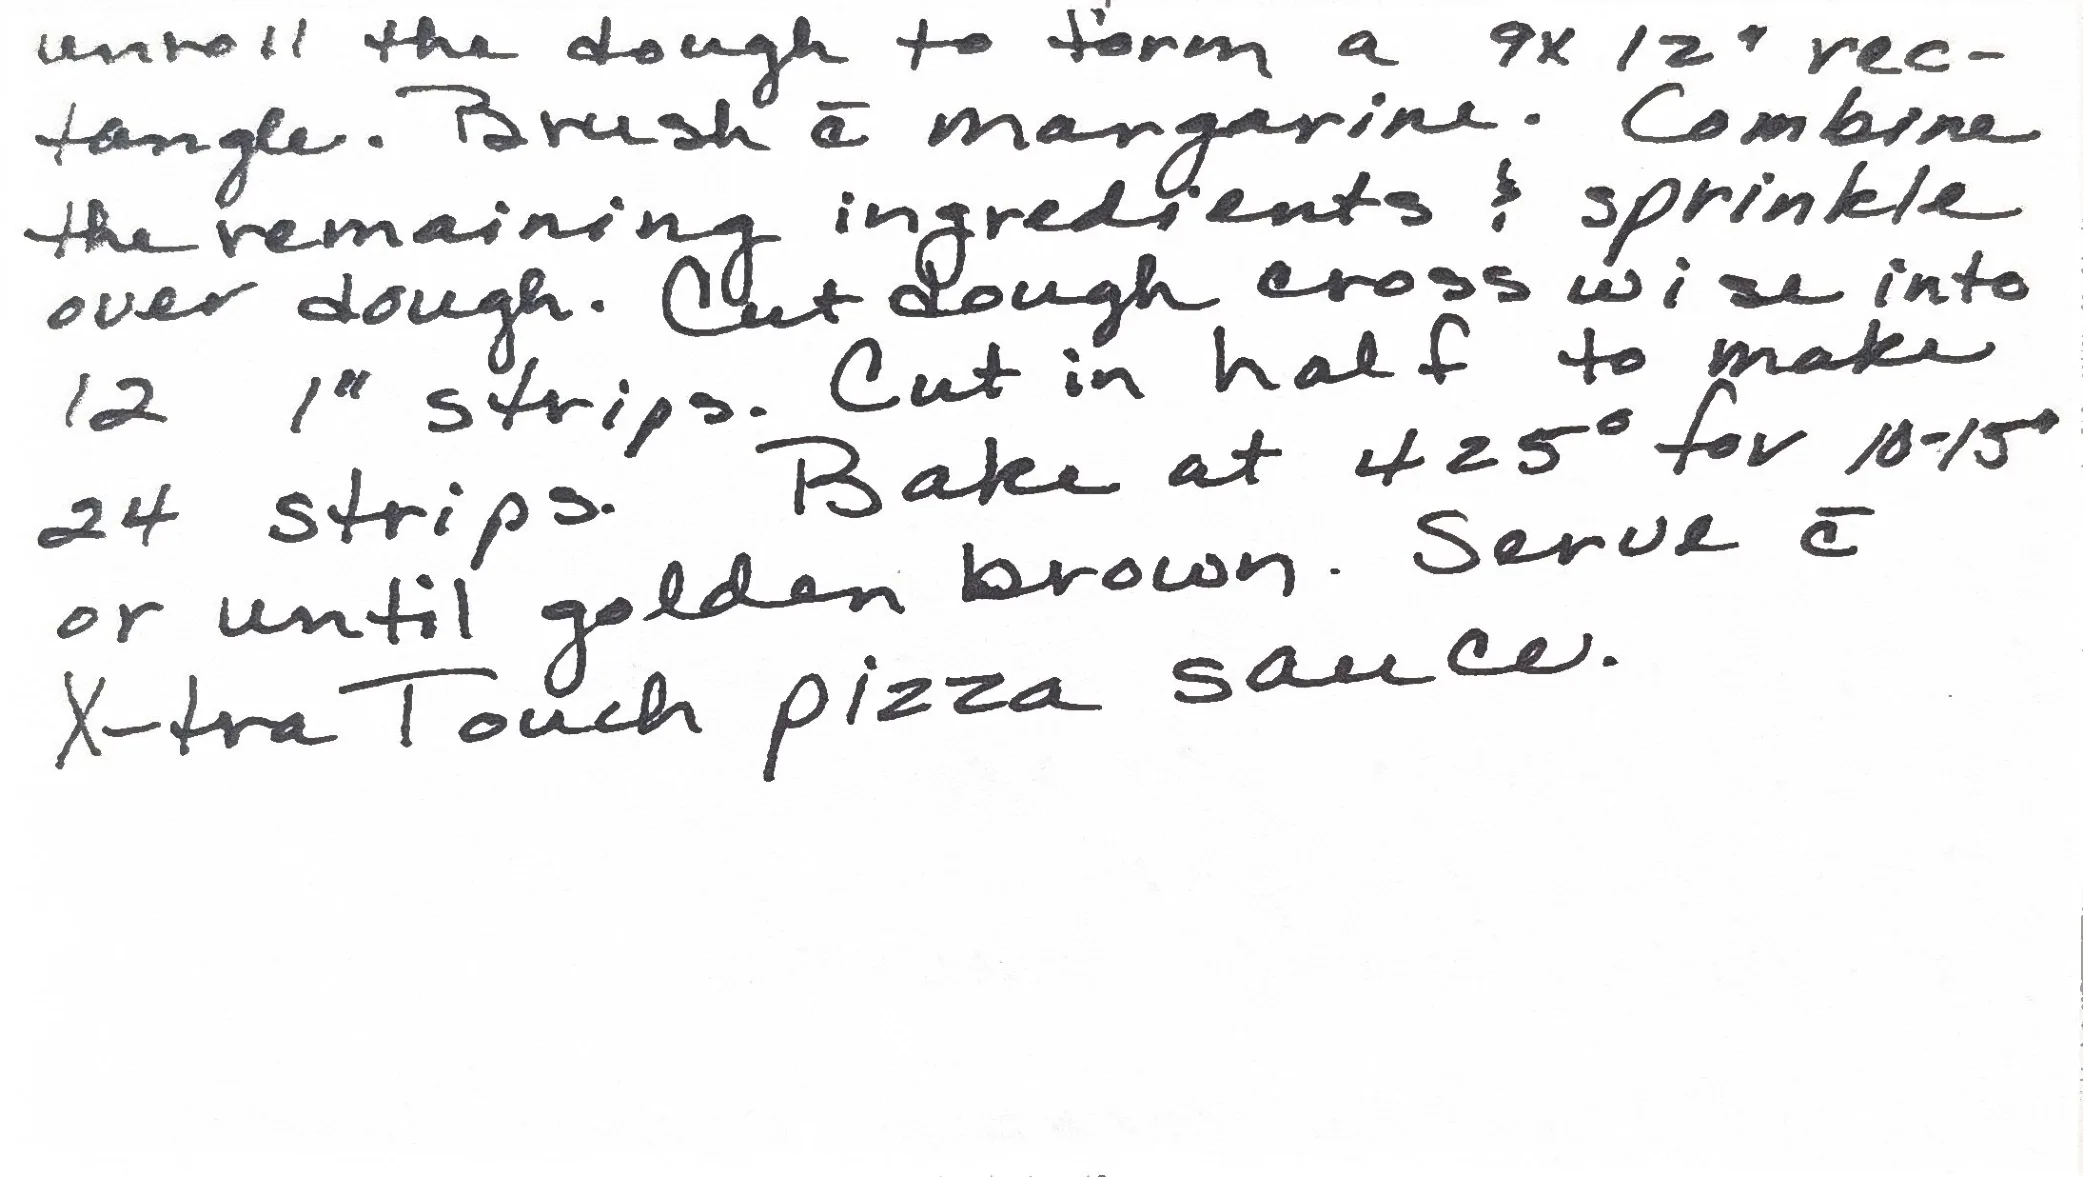 unroll the dough to form a 9x12" rec-
tangle. Brush c̄ margarine. Combine
the remaining ingredients & sprinkle
over dough. Cut dough crosswise into
12 1" strips. Cut in half to make
24 strips. Bake at 425° for 10-15'
or until golden brown. Serve c̄
X-tra Touch pizza sauce.